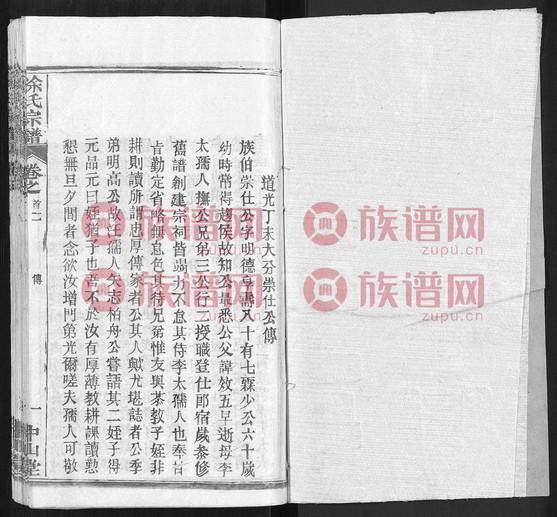 道光丁未大分崇仕公傳
族伯崇仕公字明德享壽八十有七霖少公六十歲
幼時常得趨侯故知公最悉公父諱效五早逝母李
太孺人撫公兄弟三公行二授職登仕郎宿歲叅修
舊譜創建宗祠皆竭力不怠其侍李太孺人也奉甘
旨勤定省略無怠色其待兄弟惟友與恭教子姪非
耕則讀所謂忠厚傳家者公其人歟尤堪誌者公季
弟明高公故汪孺人矢志柏舟公嘗語其二姪子得
元品元曰姪猶子也吾不於汝有厚薄教耕課讀懃
懇無旦夕間者念欲汝增門第光爾嗟夫孺人可敬
余氏宗譜
卷之
首二
傳
一
中山堂
族谱网
zupu.cn
族谱网
zupu.cn
族谱网
zupu.cn
族谱网
zupu.cn